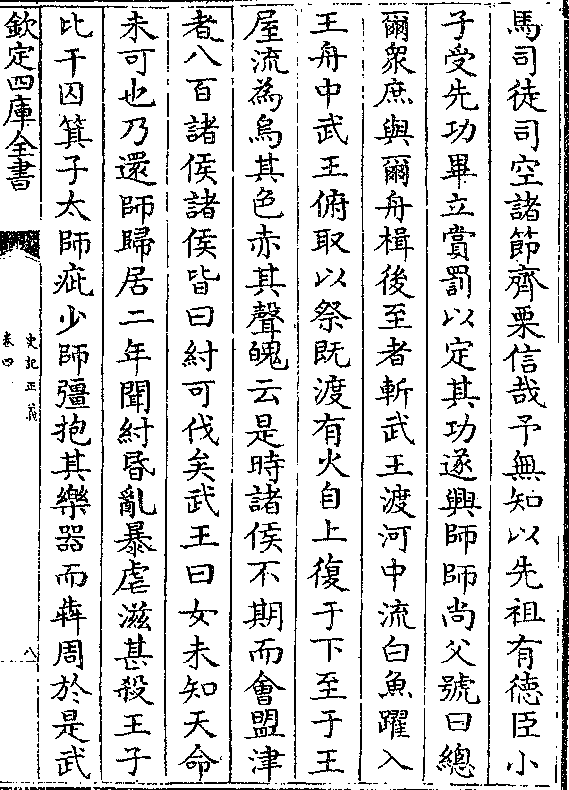 馬司徒司空諸節齊栗信哉予無知以先祖有德臣小
子受先功畢立賞罰以定其功遂興師師尚父號曰總
爾衆庶與爾舟楫後至者斬武王渡河中流白魚躍入
王舟中武王俯取以祭既渡有火自上復于下至于王
屋流為烏其色赤其聲魄云是時諸侯不期而會盟津
者八百諸侯諸侯皆曰紂可伐矣武王曰女未知天命
未可也乃還師歸居二年聞紂昏亂暴虐滋甚殺王子
比干囚箕子太師疵少師彊抱其樂器而犇周於是武
欽定四庫全書
史記正義
卷四
八